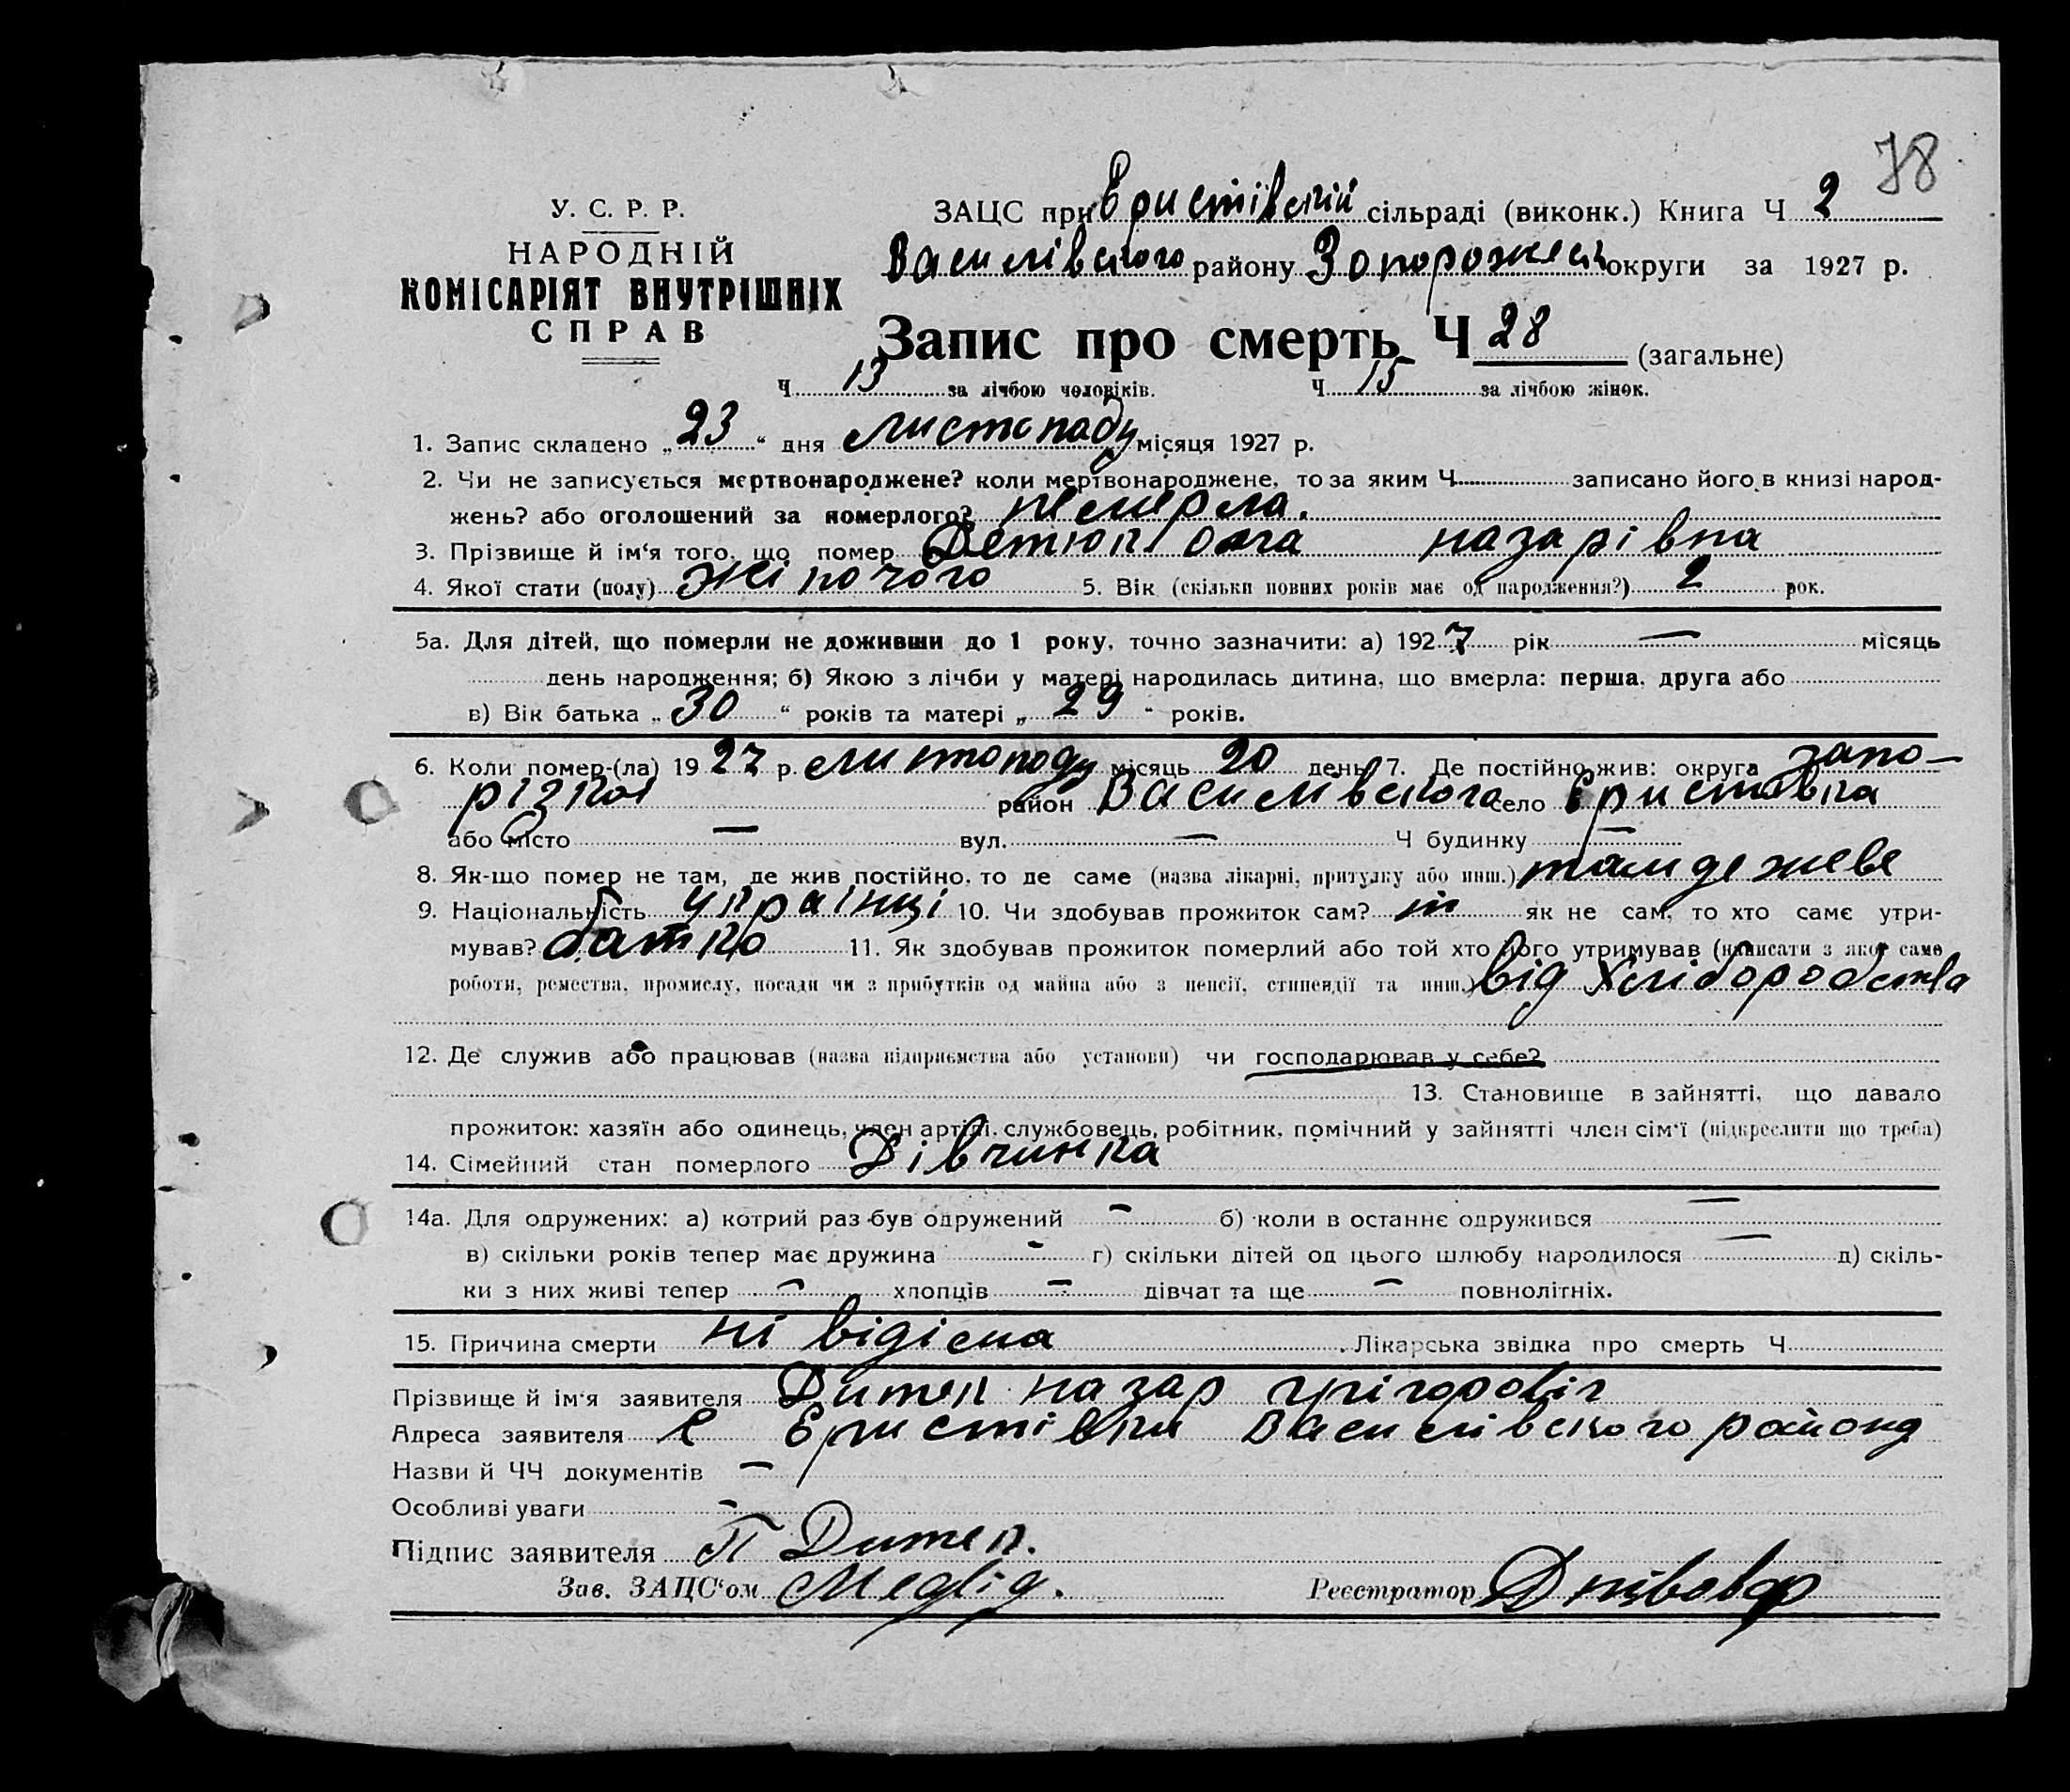 78
У. С. Р. Р.
НАРОДНІЙ
КОМІСАРІЯТ ВНУТРІШНІХ
СПРАВ
ЗАЦС при Еристівській сільраді (виконк.) Книга Ч 2
Василівського району Запорожськ округи за 1927 р.
Запис про смерть Ч 28 (загальне)
Ч 13 за лічбою чоловіків. Ч 15 за лічбою жінок.
1. Запис складено „ 23 “ дня листопаду місяця 1927 р.
2. Чи не записується мертвонароджене? коли мертвонароджене, то за яким Ч записано його в книзі народ-
жень? або оголошений за померлого?
3. Прізвище й ім‘я того, що помер назарівна
4. Якої стати (полу) жіночого 5. Вік (скільки повних років має од народження?) 2 рок.
5а. Для дітей, що померли не доживши до 1 року, точно зазначити: а) 192 7 рік — місяць
день народження; б) Якою з лічби у матері народилась дитина, що вмерла: перша, друга або
в) Вік батька „ 30 “ років та матері „ 29 “ років.
6. Коли помер-(ла) 19 27 р. листопаду місяць 20 день 7. Де постійно жив: округа запо-
різкої район Василівського село Еристовка
або місто — вул. — Ч будинку —
8. Як-що помер не там, де жив постійно, то де саме (назва лікарні, притулку або инш.) там де жеве
9. Національність українці 10. Чи здобував прожиток сам? ні як не сам, то хто саме утри-
мував? батько 11. Як здобував прожиток померлий або той хто його утримував (написати з якої саме
роботи, ремества, промислу, посади чи з прибутків од майна або з пенсії, стипендії та инш.) від хліборобства
12. Де служив або працював (назва підприємства або установи) чи господарював у себе?
13. Становище в зайнятті, що давало
прожиток: хазяїн або одинець, член артілі, службовець, робітник, помічний у зайнятті член сім‘ї (підкреслити що треба)
14. Сімейний стан померлого Дівчинка
14а. Для одружених: а) котрий раз був одружений — б) коли в останнє одружився —
в) скільки років тепер має дружина — г) скільки дітей од цього шлюбу народилося — д) скіль-
ки з них живі тепер — хлопців — дівчат та ще — повнолітніх.
15. Причина смерти ні відіома . Лікарська звідка про смерть Ч
Прізвище й ім‘я заявителя назар грігоровіч
Адреса заявителя с Еристівки Василівського району
Назви й ЧЧ документів —
Особливі уваги -
Підпис заявителя
Зав. ЗАЦС‘ом Медвід. Реєстратор